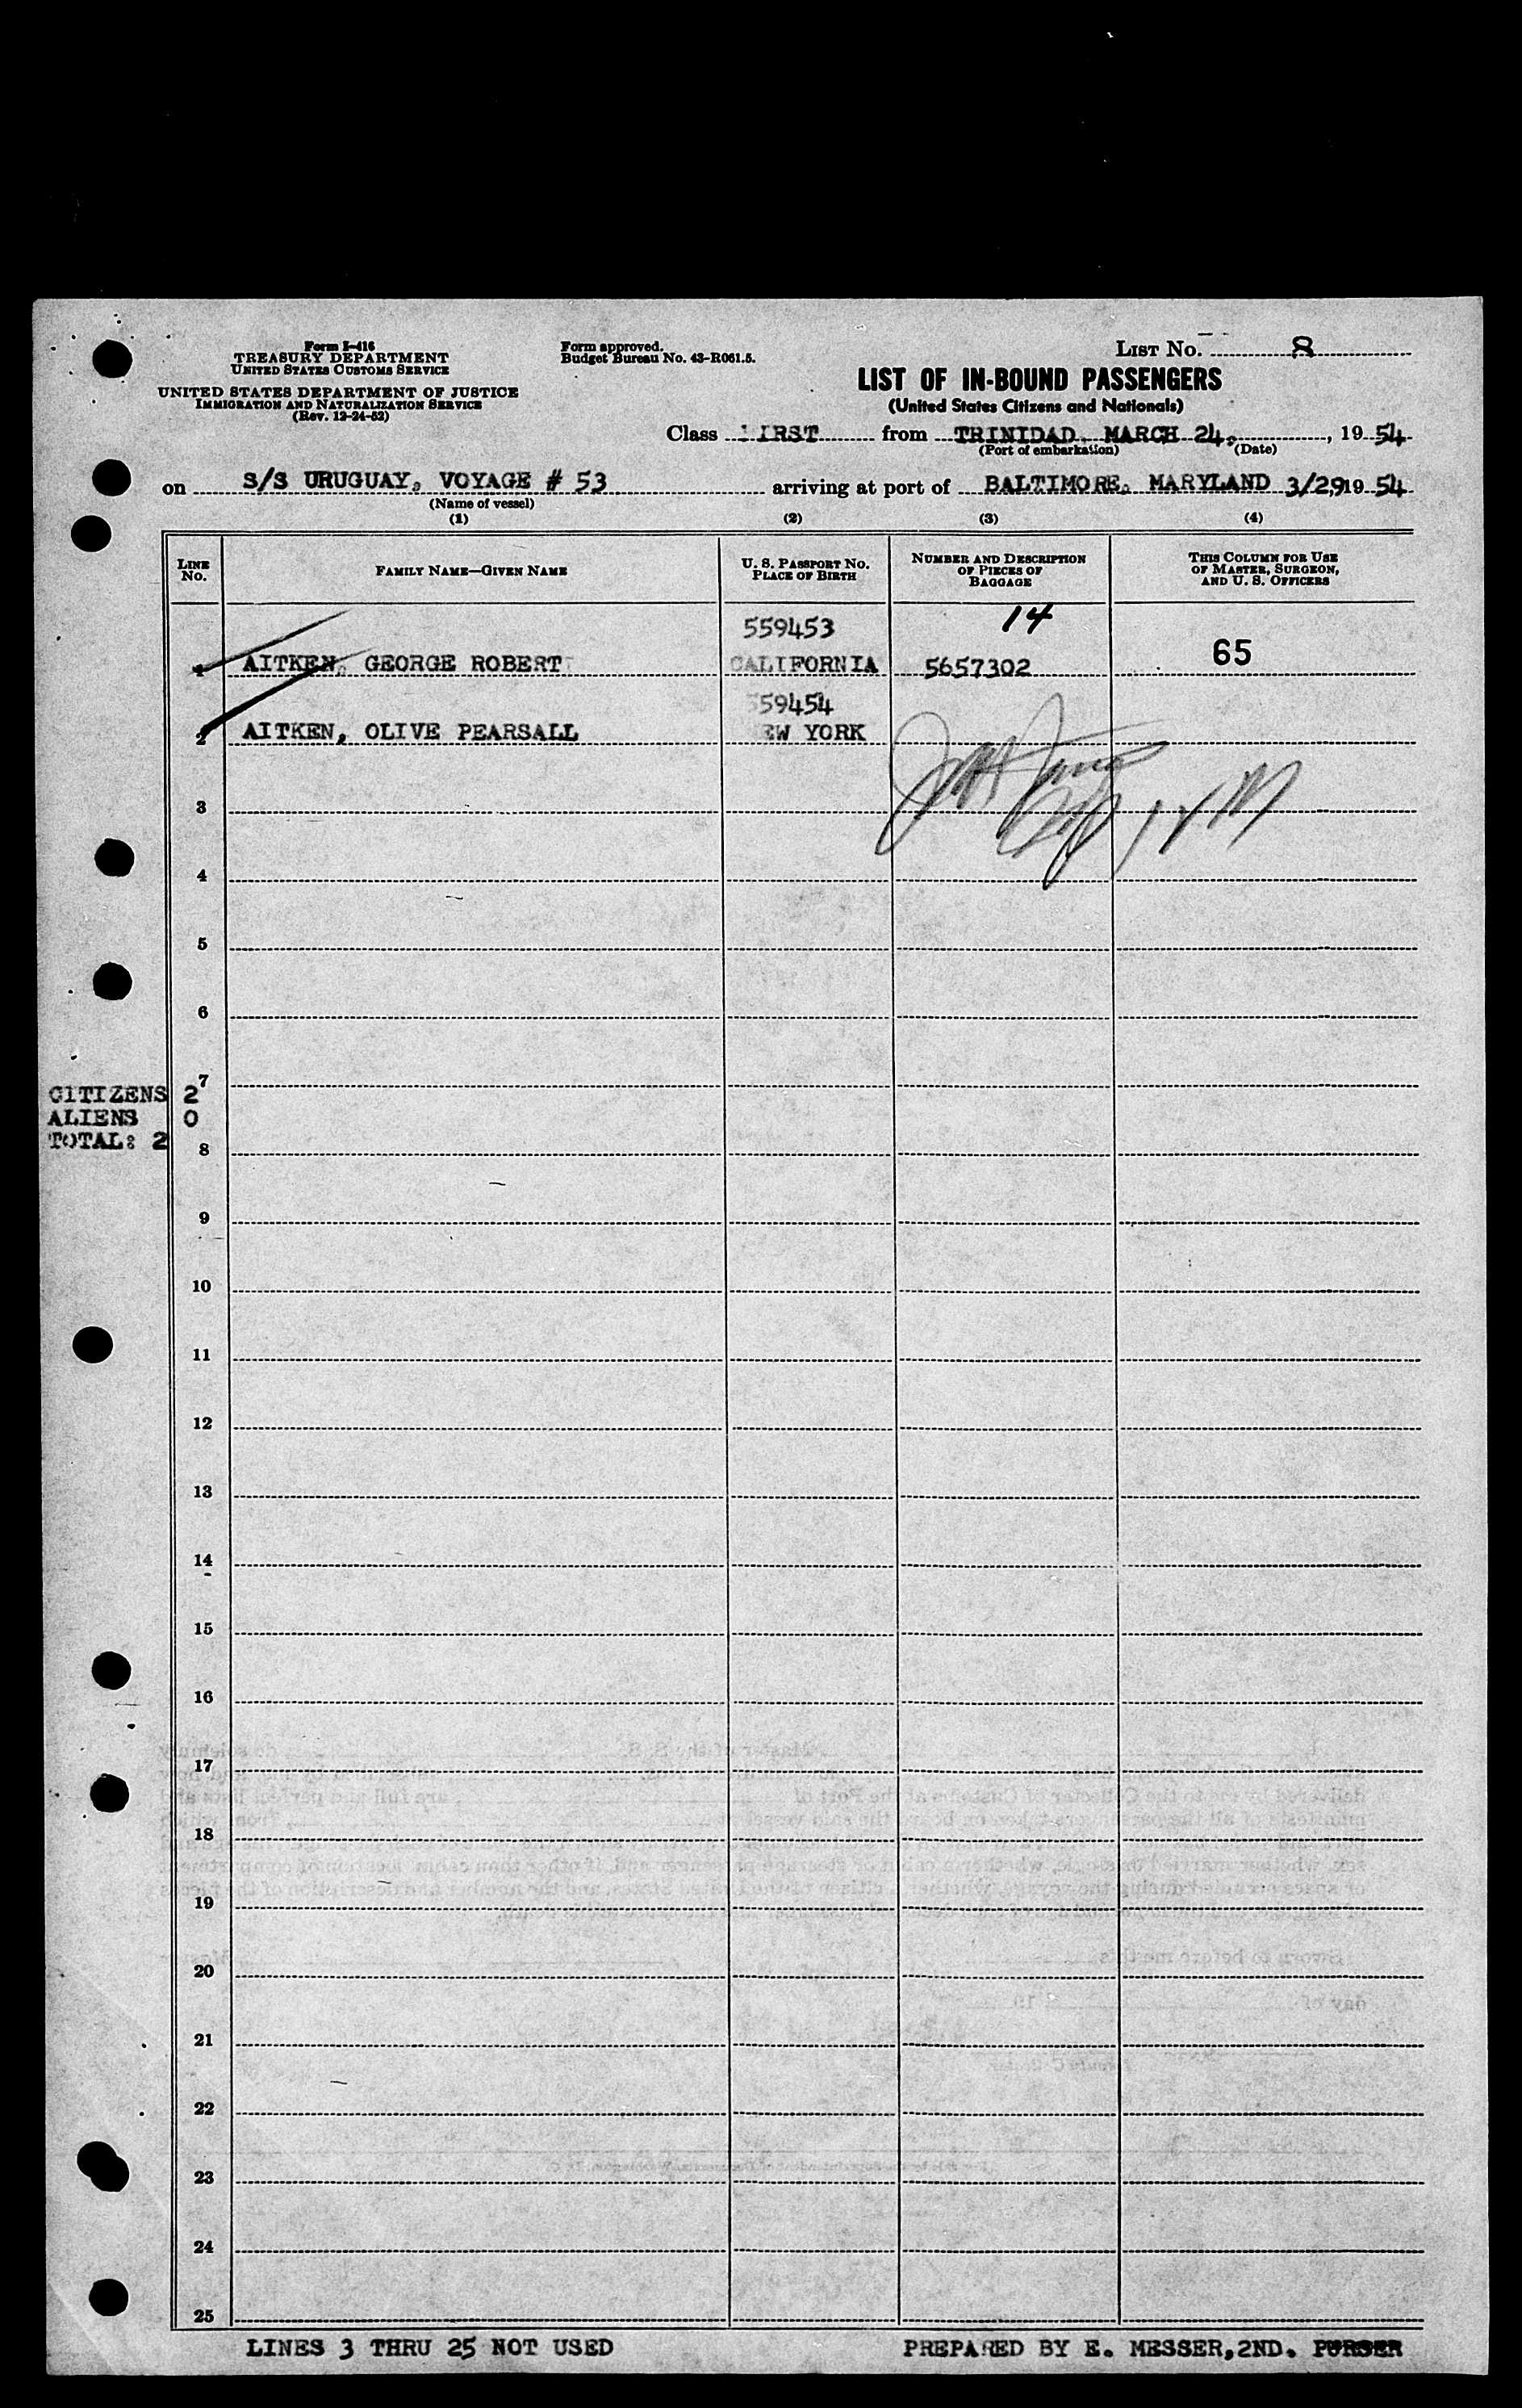 Form I-416
TREASURY DEPARTMENT
UNITED STATES CUSTOMS SERVICE
UNITED STATES DEPARTMENT OF JUSTICE
IMMIGRATION AND NATURALIZATION SERVICE
(Rev. 12-24-52)
Form approved.
Budget Bureau No. 43-R061.5.
LIST No. 8
LIST OF IN-BOUND PASSENGERS
(United States Citizens and Nationals)
Class FIRST from TRINIDAD, MARCH 24, , 19 54
(Port of embarkation) (Date)
on S/S URUGUAY, VOYAGE # 53 arriving at port of BALTIMORE, MARYLAND 3/29, 19 54
(Name of vessel)
(1) (2) (3) (4)
LINE No. FAMILY NAME—GIVEN NAME U. S. PASSPORT No. PLACE OF BIRTH NUMBER AND DESCRIPTION OF PIECES OF BAGGAGE THIS COLUMN FOR USE OF MASTER, SURGEON, AND U. S. OFFICERS
559453 14
1 AITKEN, GEORGE ROBERT CALIFORNIA 5657302 65
559454
2 AITKEN, OLIVE PEARSALL NEW YORK
3
4
5
6
7
CITIZENS 2
ALIENS 0
TOTAL: 2
8
9
10
11
12
13
14
15
16
17
18
19
20
21
22
23
24
25
LINES 3 THRU 25 NOT USED PREPARED BY E. MESSER, 2ND. PURSER